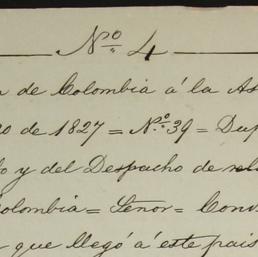 Nº 4
de Colombia á la As
o de 1827 = Nº 39 = Dup
o y del Despacho de rela
Colombia = Señor = Conv
que llegó á este pais